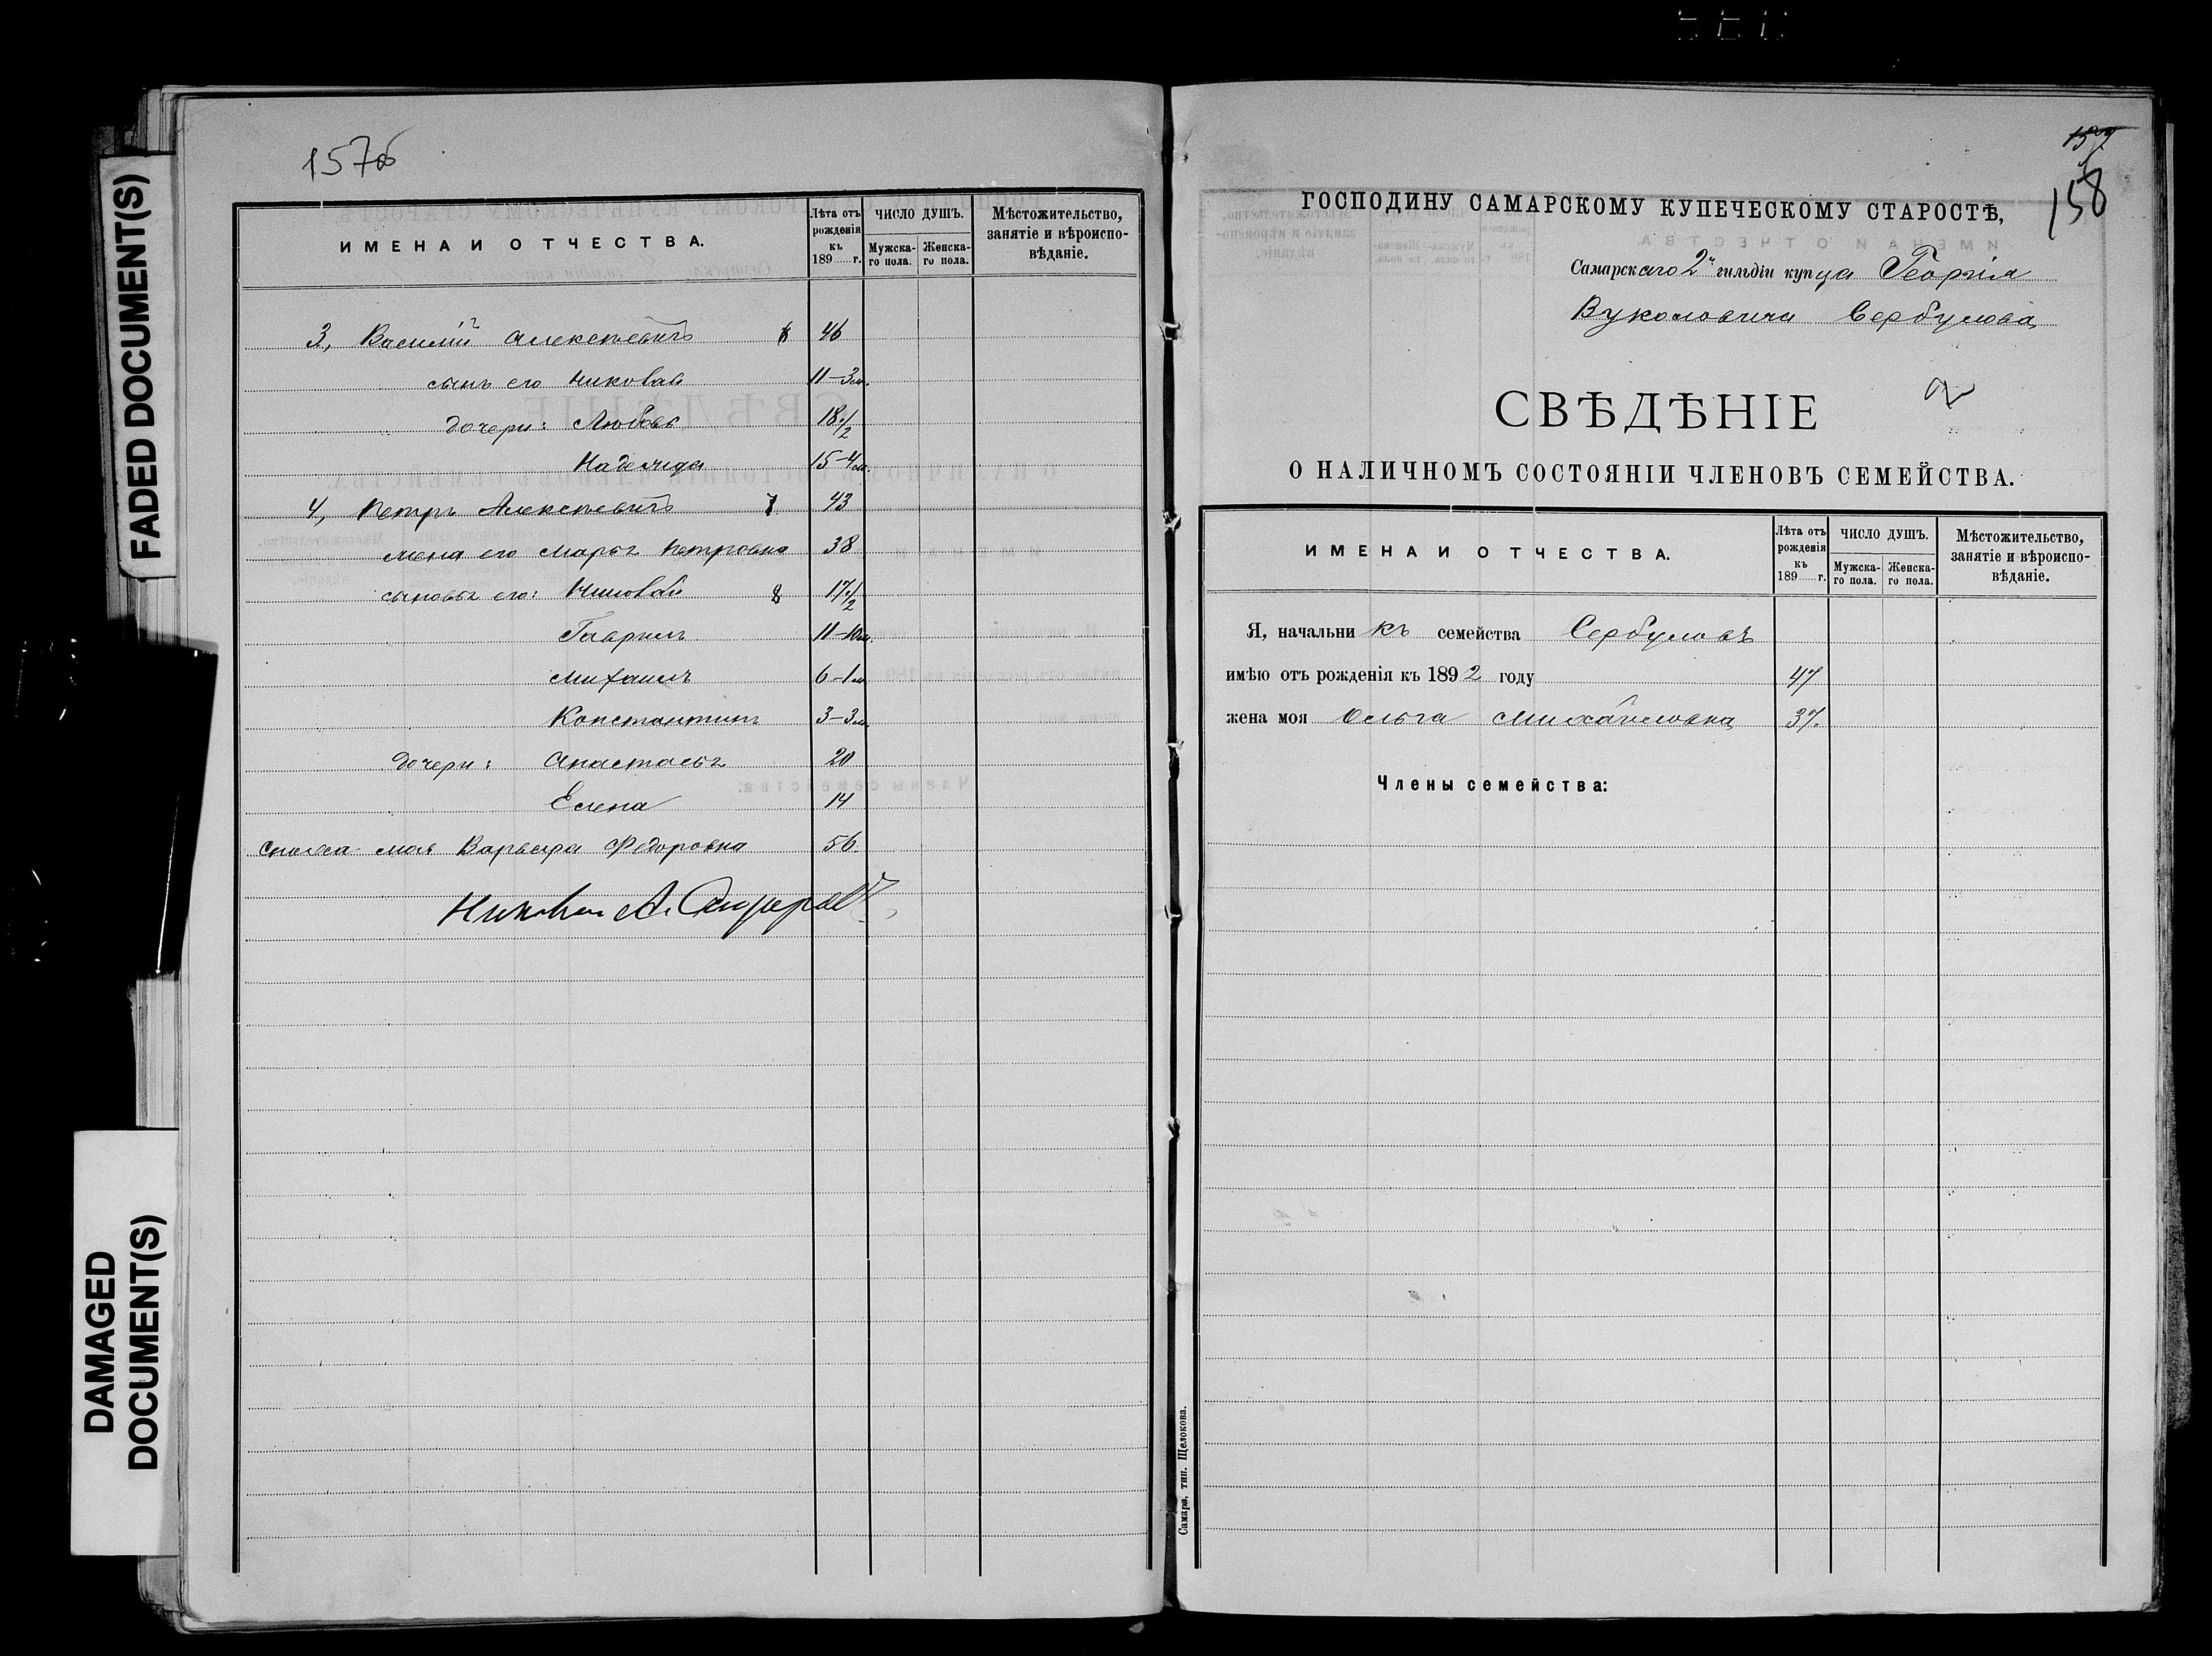 FADED DOCUMENT(S)
DAMAGED
DOCUMENT(S)
157об
ИМЕНА И ОТЧЕСТВА.
Лѣта отъ рожденія къ 189 г.
ЧИСЛО ДУШЪ.
Мужска-го пола.
Женска-го пола.
Мѣстожительство, занятіе и вѣроиспо-вѣданіе.
3, Василій Алексѣевичъ 6 46
сынъ его Николай 11-3м.
дочери: Любовь 18 1/2
Надежда 15-4м.
4, Петръ Алексѣевичъ 7 43
жена его Марья Петровна 38
сыновья его: Николай 8 17 1/2
Гавріилъ 11-10м.
Михаилъ 6-1м
Константинъ 3-3м.
дочери: Анастасья 20
Елена 14
сноха моя Варвара Федоровна 56.
Николай А.
157
158
ГОСПОДИНУ САМАРСКОМУ КУПЕЧЕСКОМУ СТАРОСТѢ,
Самарскаго 2й гильдіи купца Георгія
Вуколовича Сербулова
СВѢДѢНІЕ
2
О НАЛИЧНОМЪ СОСТОЯНІИ ЧЛЕНОВЪ СЕМЕЙСТВА.
ИМЕНА И ОТЧЕСТВА.
Лѣта отъ рожденія къ 189 г.
ЧИСЛО ДУШЪ.
Мужска-го пола.
Женска-го пола.
Мѣстожительство, занятіе и вѣроиспо-вѣданіе.
Я, начальникъ семейства Сербуловъ
имѣю отъ рожденія къ 1892 году 47
жена моя Ольга Михайловна 37.
Члены семейства:
Самара, тип. Щелокова.